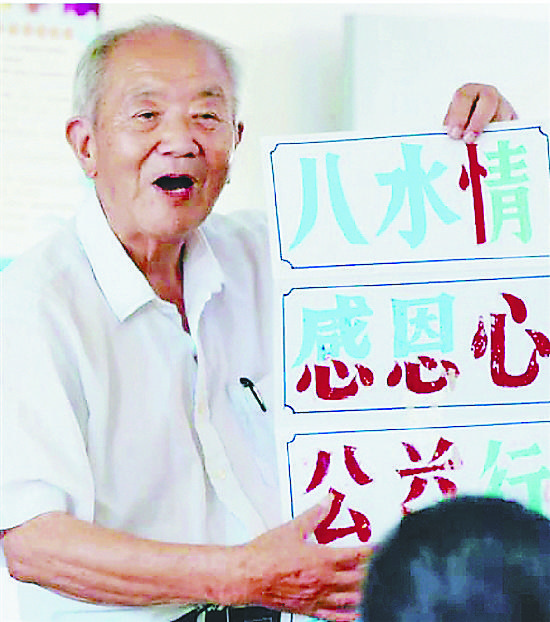 八水情
感恩心
公益行